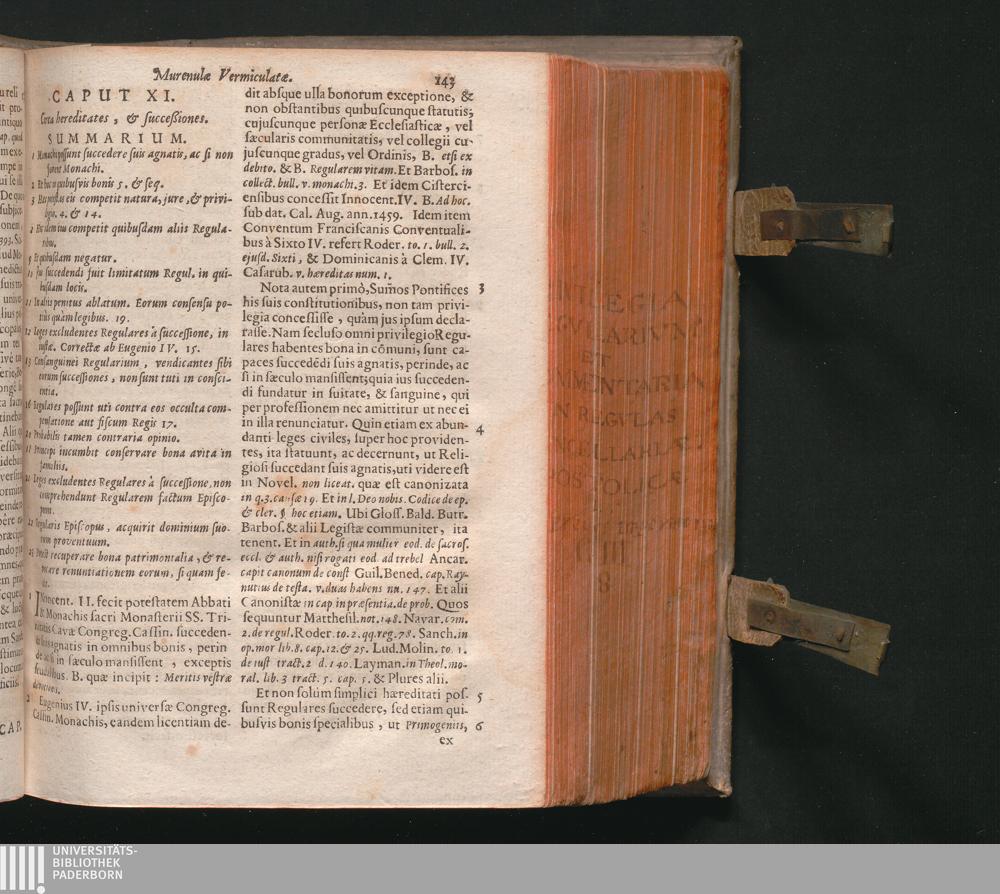 Murenulæ Vermiculatæ.
143
CAPUT XI.
Circa hereditates, & successiones.
SUMMARIUM.
1 Monachi possunt succedere suis agnatis, ac si non
essent Monachi.
2 Et hoc in quibusvis bonis 5. & seq.
3 potestas eis competit natura, jure, & privi-
legio. 4. & 14.
idem ius competit quibusdam aliis Regula-
ribus.
9 Et quibusdam negatur.
succedendi fuit limitatum Regul. in qui-
busdam locis.
11 In aliis penitus ablatum. Eorum consensu po-
tiùs quàm legibus. 19.
12 Leges excludentes Regulares à successione, in
iustæ. Correctæ ab Eugenio IV. 15.
13 Consanguinei Regularium, vendicantes sibi
eorum successiones, non sunt tuti in consci-
entia.
16 Regulares possunt uti contra eos occulta com-
pensatione aut fiscum Regis 17.
20 Probabilis tamen contraria opinio.
Principi incumbit conservare bona avita in
familiis.
Leges excludentes Regulares à successione, non
comprehendunt Regularem factum Episco-
pum.
Regularis Episcopus, acquirit dominium suo-
rum proventuum.
Potest recuperare bona patrimonialia, & re-
vocare renuntiationem eorum, si quam fe-
cit.
1 INnocent. II. fecit potestatem Abbati
& Monachis sacri Monasterii SS. Tri-
nitatis Cavæ Congreg. Cassin. succeden-
di suis agnatis in omnibus bonis, perin
de ac si in sæculo mansissent, exceptis
feudalibus. B. quæ incipit: Meritis vestræ
devotionis.
2 Eugenius IV. ipsis universæ Congreg.
Cassin. Monachis, eandem licentiam de-
dit absque ulla bonorum exceptione, &
non obstantibus quibuscunque statutis;
cujuscunque personæ Ecclesiasticæ, vel
sæcularis communitatis, vel collegii cu-
juscunque gradus, vel Ordinis, B. etsi ex
debito. & B. Regularem vitam. Et Barbos. in
collect. bull. v. monachi. 3. Et idem Cisterci-
ensibus concessit Innocent. IV. B. Ad hoc.
sub dat. Cal. Aug. ann. 1459. Idem item
Conventum Franciscanis Conventuali-
bus à Sixto IV. refert Roder. to. 1. bull. 2.
ejusd. Sixti, & Dominicanis à Clem. IV.
Casarub. v. hæreditas num. 1.
Nota autem primò, Sum̃os Pontifices 3
his suis constitutionibus, non tam privi-
legia concessisse, quàm jus ipsum decla-
rasse. Nam secluso omni privilegio Regu-
lares habentes bona in cõmuni, sunt ca-
paces succedẽdi suis agnatis, perinde, ac
si in sæculo mansissent; quia ius succeden-
di fundatur in suitate, & sanguine, qui
per professionem nec amittitur ut nec ei
in illa renunciatur. Quin etiam ex abun- 4
danti leges civiles, super hoc providen-
tes, ita statuunt, ac decernunt, ut Reli-
giosi succedant suis agnatis, uti videre est
in Novel. non liceat. quæ est canonizata
in q. 3. causæ 19. Et in l. Deo nobis. Codice de ep.
& cler. § hoc etiam. Ubi Gloss. Bald. Butr.
Barbos. & alii Legistæ communiter, ita
tenent. Et in auth. si qua mulier eod. de sacros.
eccl. & auth. nisi rogati eod. ad trebel Ancar.
capit canonum de const Guil. Bened. cap. Ray-
nutius de testa. v. duas habens nu. 147. Et alii
Canonistæ in cap in præsentia. de prob. Quos
sequuntur Matthesil. not. 148. Navar. com.
2. de regul. Roder. to. 2. qq. reg. 78. Sanch. in
op. mor lib. 8. cap. 12. & 25. Lud. Molin. to. 1.
de iust tract. 2 d. 140. Layman. in Theol. mo-
ral. lib. 3 tract. 5. cap. 5. & Plures alii.
Et non solùm simplici hæreditati pos- 5
sunt Regulares succedere, sed etiam qui-
busvis bonis specialibus, ut Primogeniis, 6
ex
CAP.
ET
N REGVLAS
III
8
UNIVERSITÄTS-
BIBLIOTHEK
PADERBORN